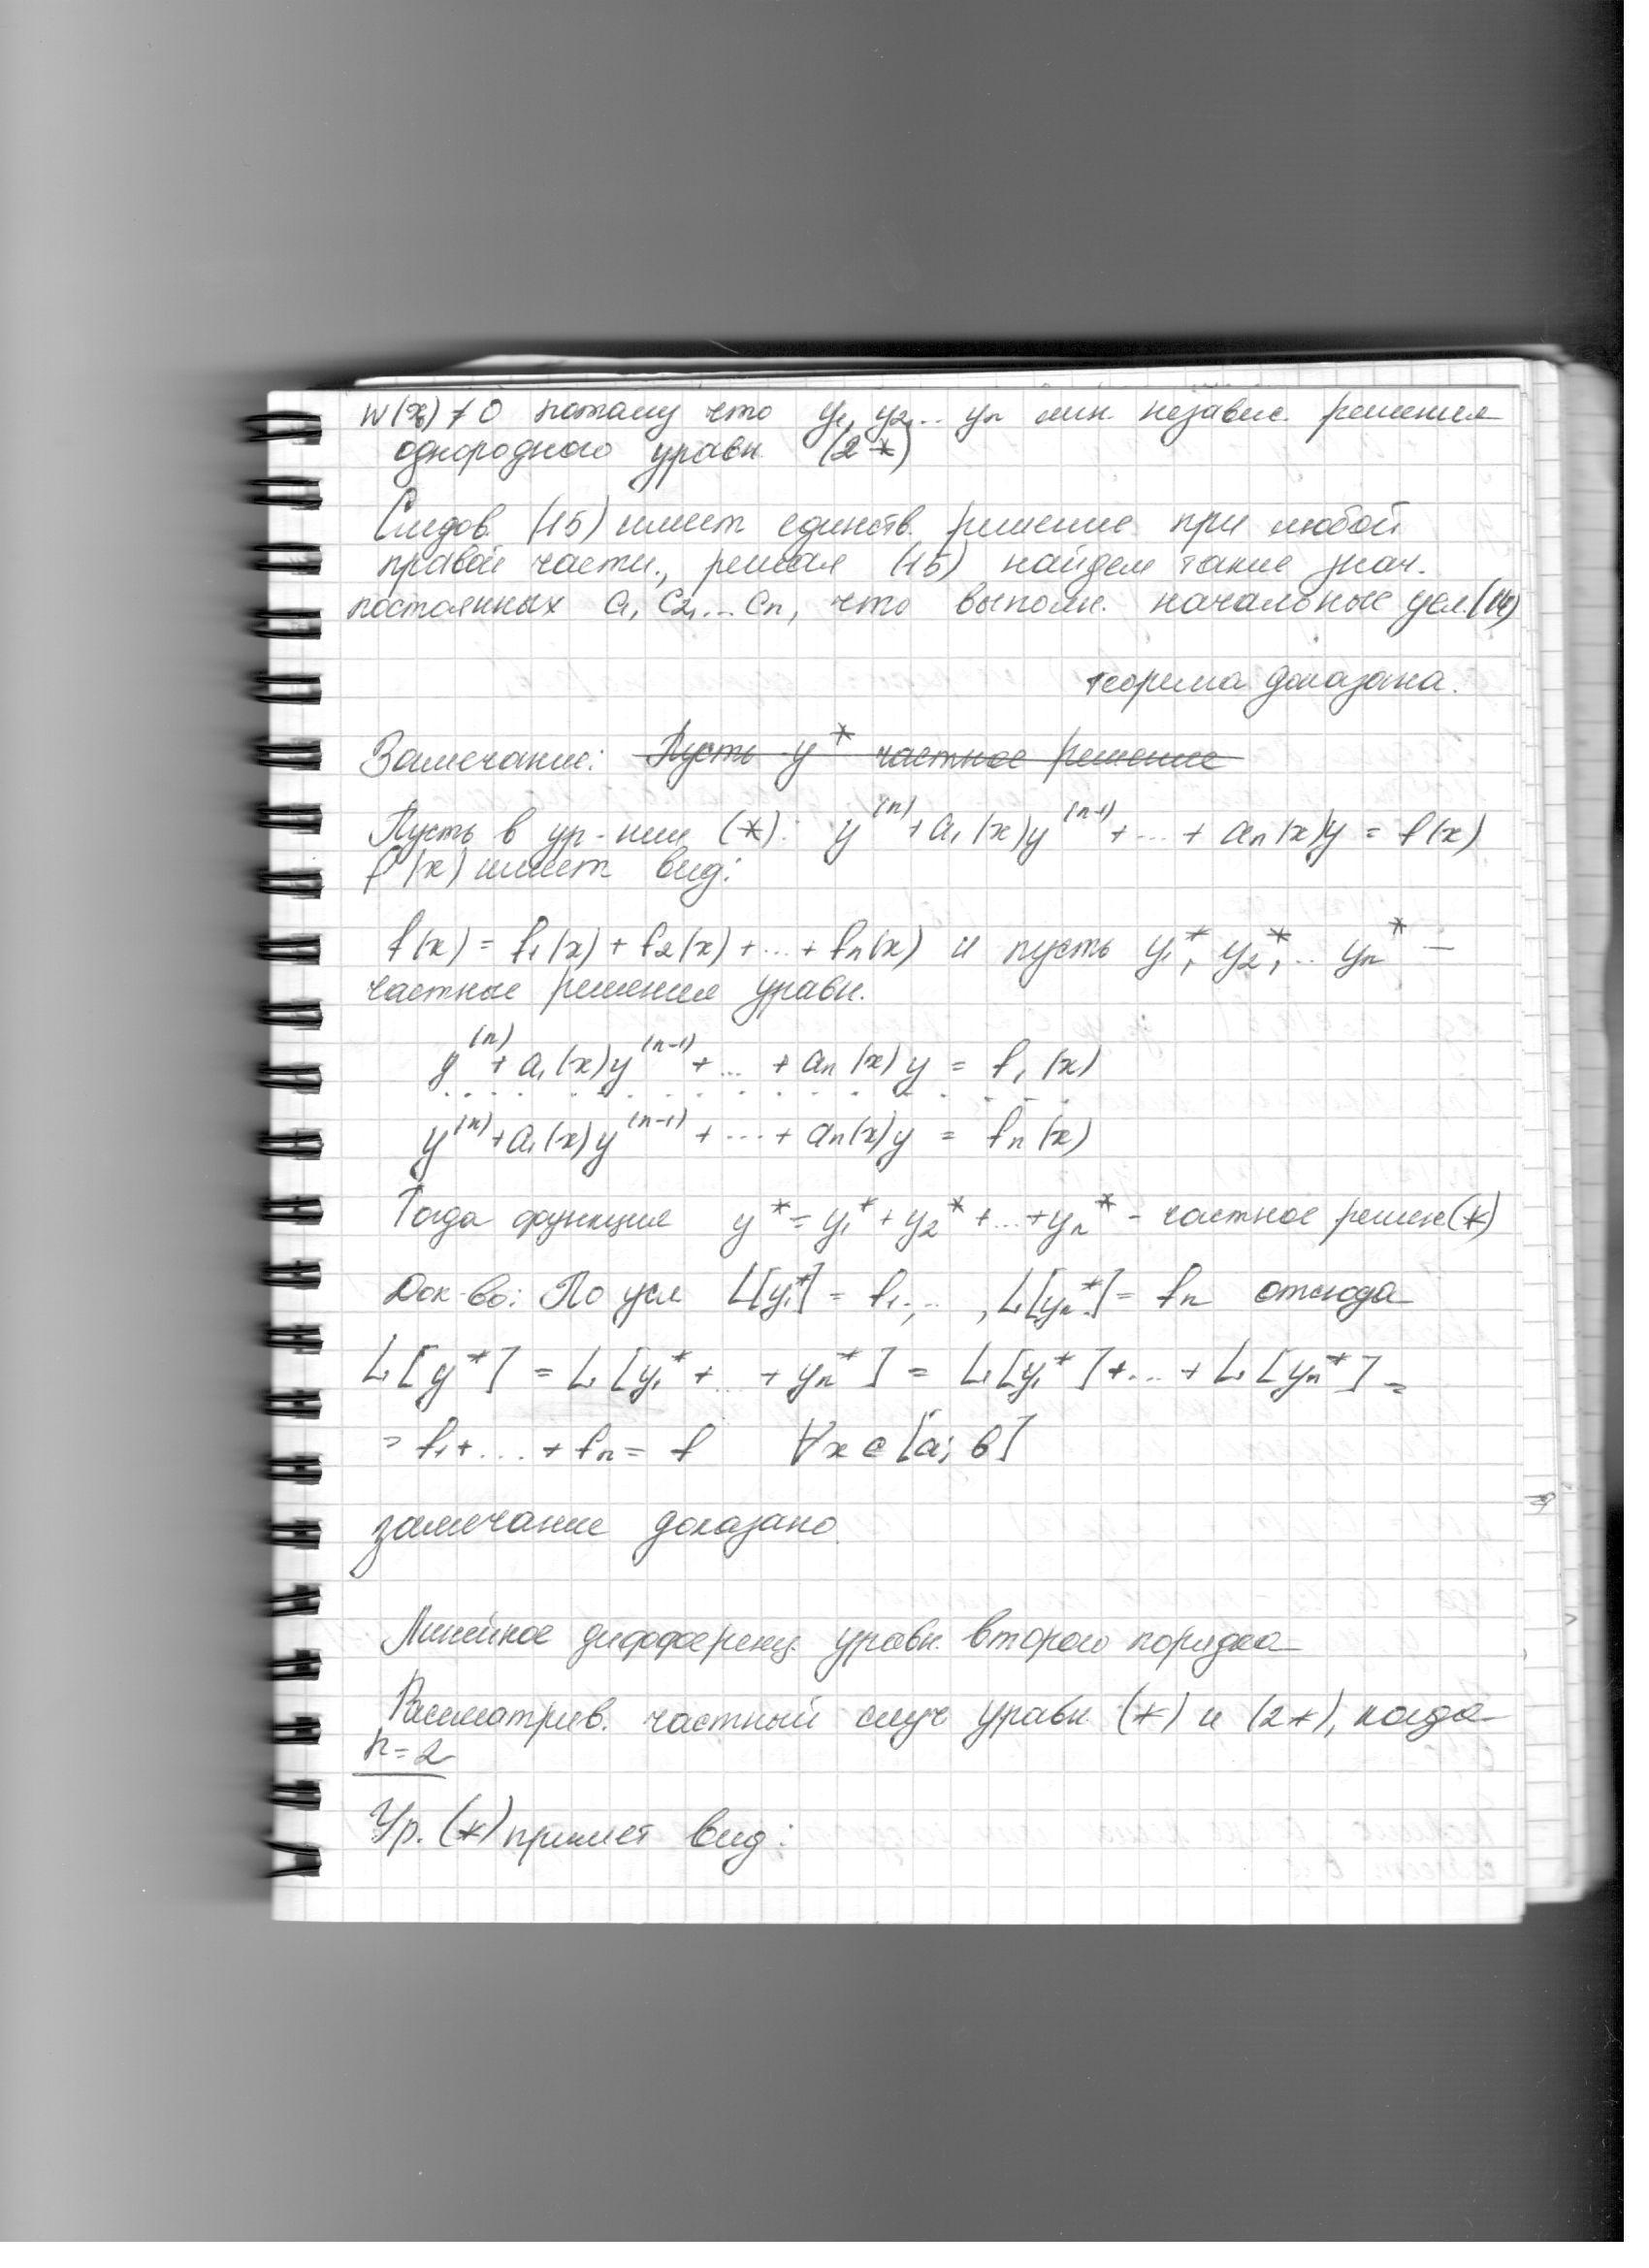 W(x₀) ≠ 0 потому что y₁, y₂,... yn лин. независ. решения
однородного уравн (2*)
Следов. (15) имеет единств. решение при любой
правой части., решая (15) найдем такие знач.
постоянных C₁, C₂,... Cn, что выполн. начальные усл.(14)
теорема доказана.
Замечание: Пусть y* частное решение
Пусть в ур-нии (*): y⁽ⁿ⁾ + a₁(x)y⁽ⁿ⁻¹⁾ + ... + an(x)y = f(x)
f(x) имеет вид:
f(x) = f₁(x) + f₂(x) + ... + fn(x) и пусть y₁*, y₂*,.. yn* –
частные решения уравн.
y⁽ⁿ⁾ + a₁(x)y⁽ⁿ⁻¹⁾ + ... + an(x)y = f₁(x)
. . . . . . . . . . . . . . . .
y⁽ⁿ⁾ + a₁(x)y⁽ⁿ⁻¹⁾ + ... + an(x)y = fn(x)
Тогда функция y* = y₁* + y₂* + ... + yn* - частное решен(*)
Док-во: По усл L[y₁*] = f₁,.. , L[yn*] = fn отсюда
L[y*] = L[y₁* + ... + yn*] = L[y₁*] + ... + L[yn*] =
= f₁ + ... + fn = f ∀x ∈ [a; b]
замечание доказано.
Линейное дифференц уравн. второго порядка
Рассматрив. частный случ уравн (*) и (2*), когда
n = 2
Ур. (*) примет вид: